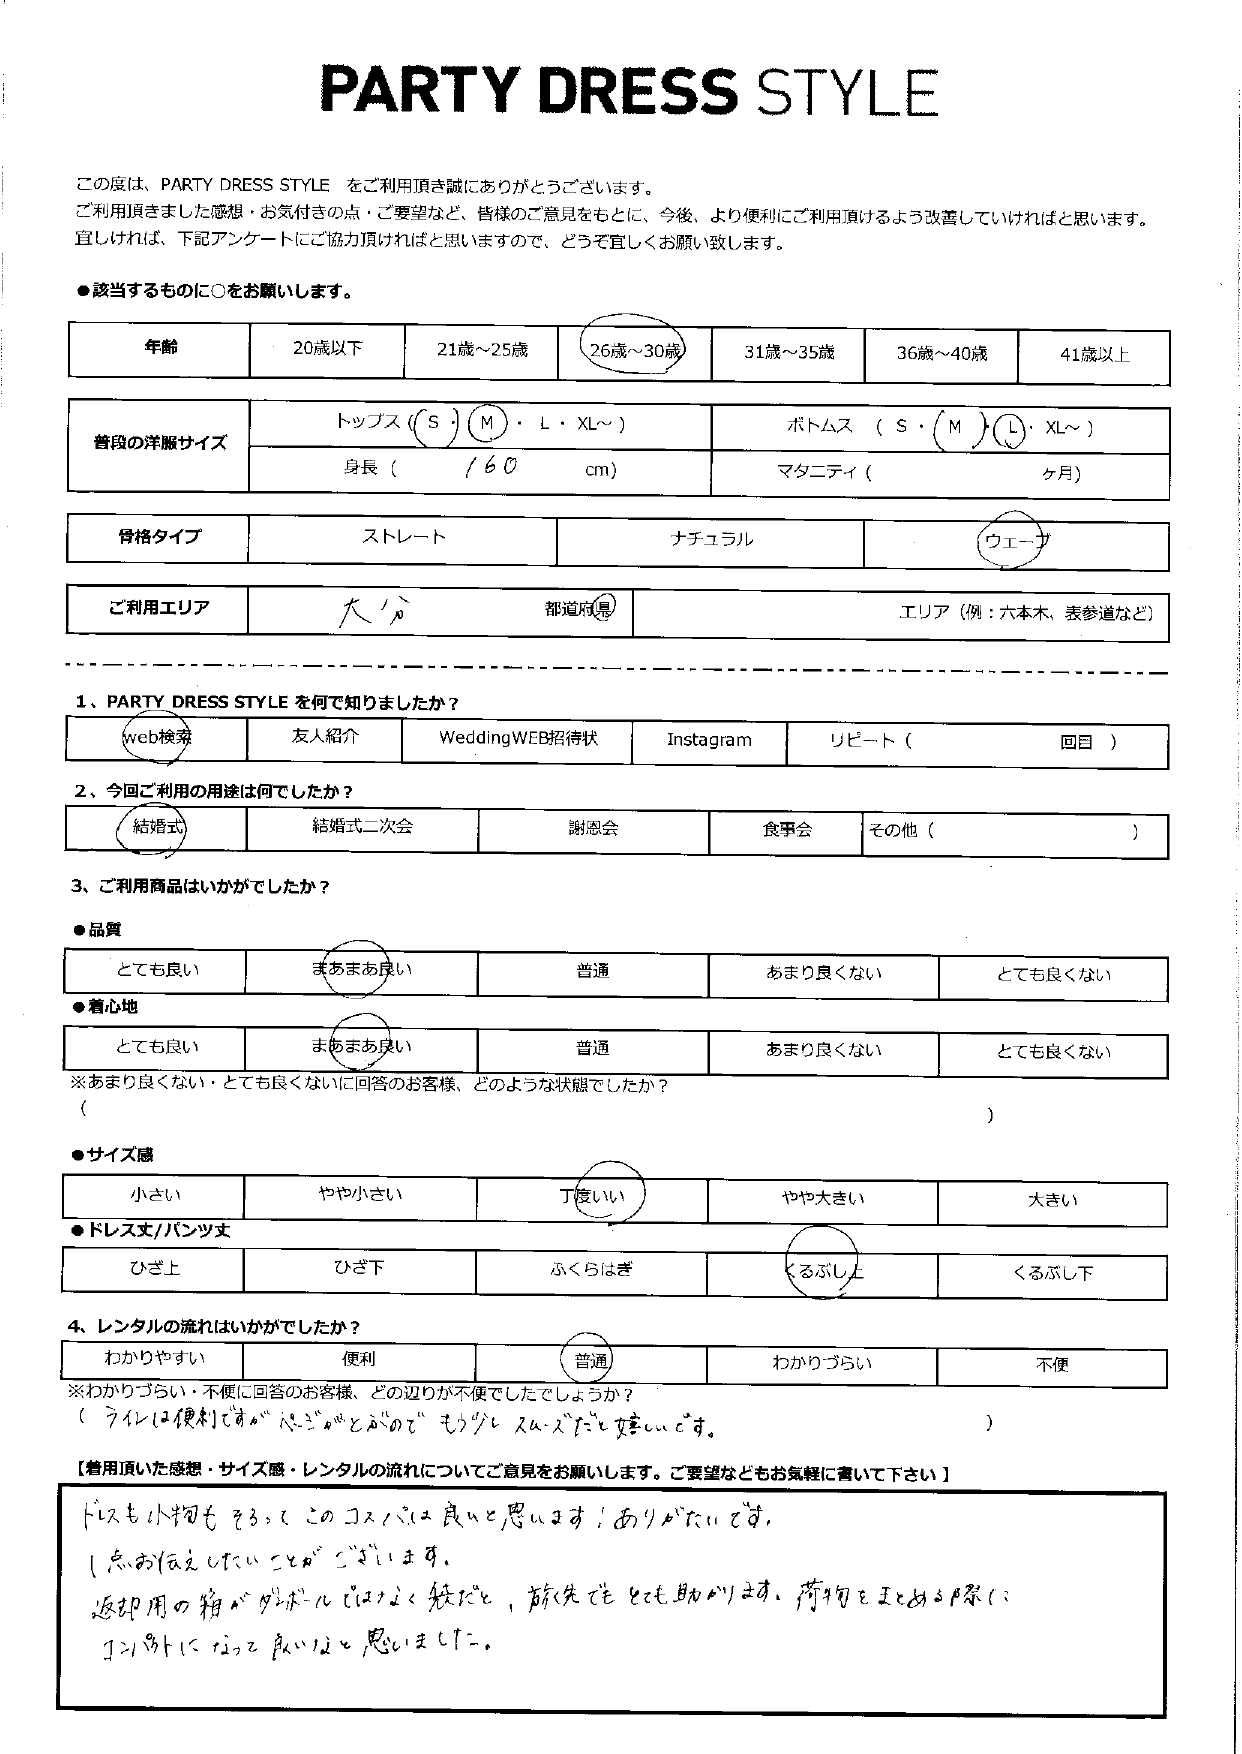 PARTY DRESS STYLE
この度は、PARTY DRESS STYLE をご利用頂き誠にありがとうございます。
ご利用頂きました感想・お気付きの点・ご要望など、皆様のご意見をもとに、今後、より便利にご利用頂けるよう改善していければと思います。
宜しければ、下記アンケートにご協力頂ければと思いますので、どうぞ宜しくお願い致します。
●該当するものに○をお願いします。
年齢 20歳以下 21歳～25歳 26歳～30歳 31歳～35歳 36歳～40歳 41歳以上
普段の洋服サイズ トップス ( S ・ M ・ L ・ XL～ ) ボトムス ( S ・ M ・ L ・ XL～ )
身長 ( 160 cm) マタニティ ( ヶ月)
骨格タイプ ストレート ナチュラル ウェーブ
ご利用エリア 大分 都道府県 エリア（例：六本木、表参道など）
1、PARTY DRESS STYLE を何で知りましたか？
web検索 友人紹介 WeddingWEB招待状 Instagram リピート ( 回目 )
2、今回ご利用の用途は何でしたか？
結婚式 結婚式二次会 謝恩会 食事会 その他 ( )
3、ご利用商品はいかがでしたか？
●品質
とても良い まあまあ良い 普通 あまり良くない とても良くない
●着心地
とても良い まあまあ良い 普通 あまり良くない とても良くない
※あまり良くない・とても良くないに回答のお客様、どのような状態でしたか？
( )
●サイズ感
小さい やや小さい 丁度いい やや大きい 大きい
●ドレス丈/パンツ丈
ひざ上 ひざ下 ふくらはぎ くるぶし上 くるぶし下
4、レンタルの流れはいかがでしたか？
わかりやすい 便利 普通 わかりづらい 不便
※わかりづらい・不便に回答のお客様、どの辺りが不便でしたでしょうか？
( ラインは便利ですが ページがとぶので もう少し スムーズだと嬉しいです。 )
【着用頂いた感想・サイズ感・レンタルの流れについてご意見をお願いします。ご要望などもお気軽に書いて下さい】
ドレスも小物もそろって このコスパは良いと思います！ありがたいです。
1点お伝えしたいことがございます。
返却用の箱がダンボールではなく紙だと、旅先でもとても助かります。荷物をまとめる際に
コンパクトになって良いなと思いました。